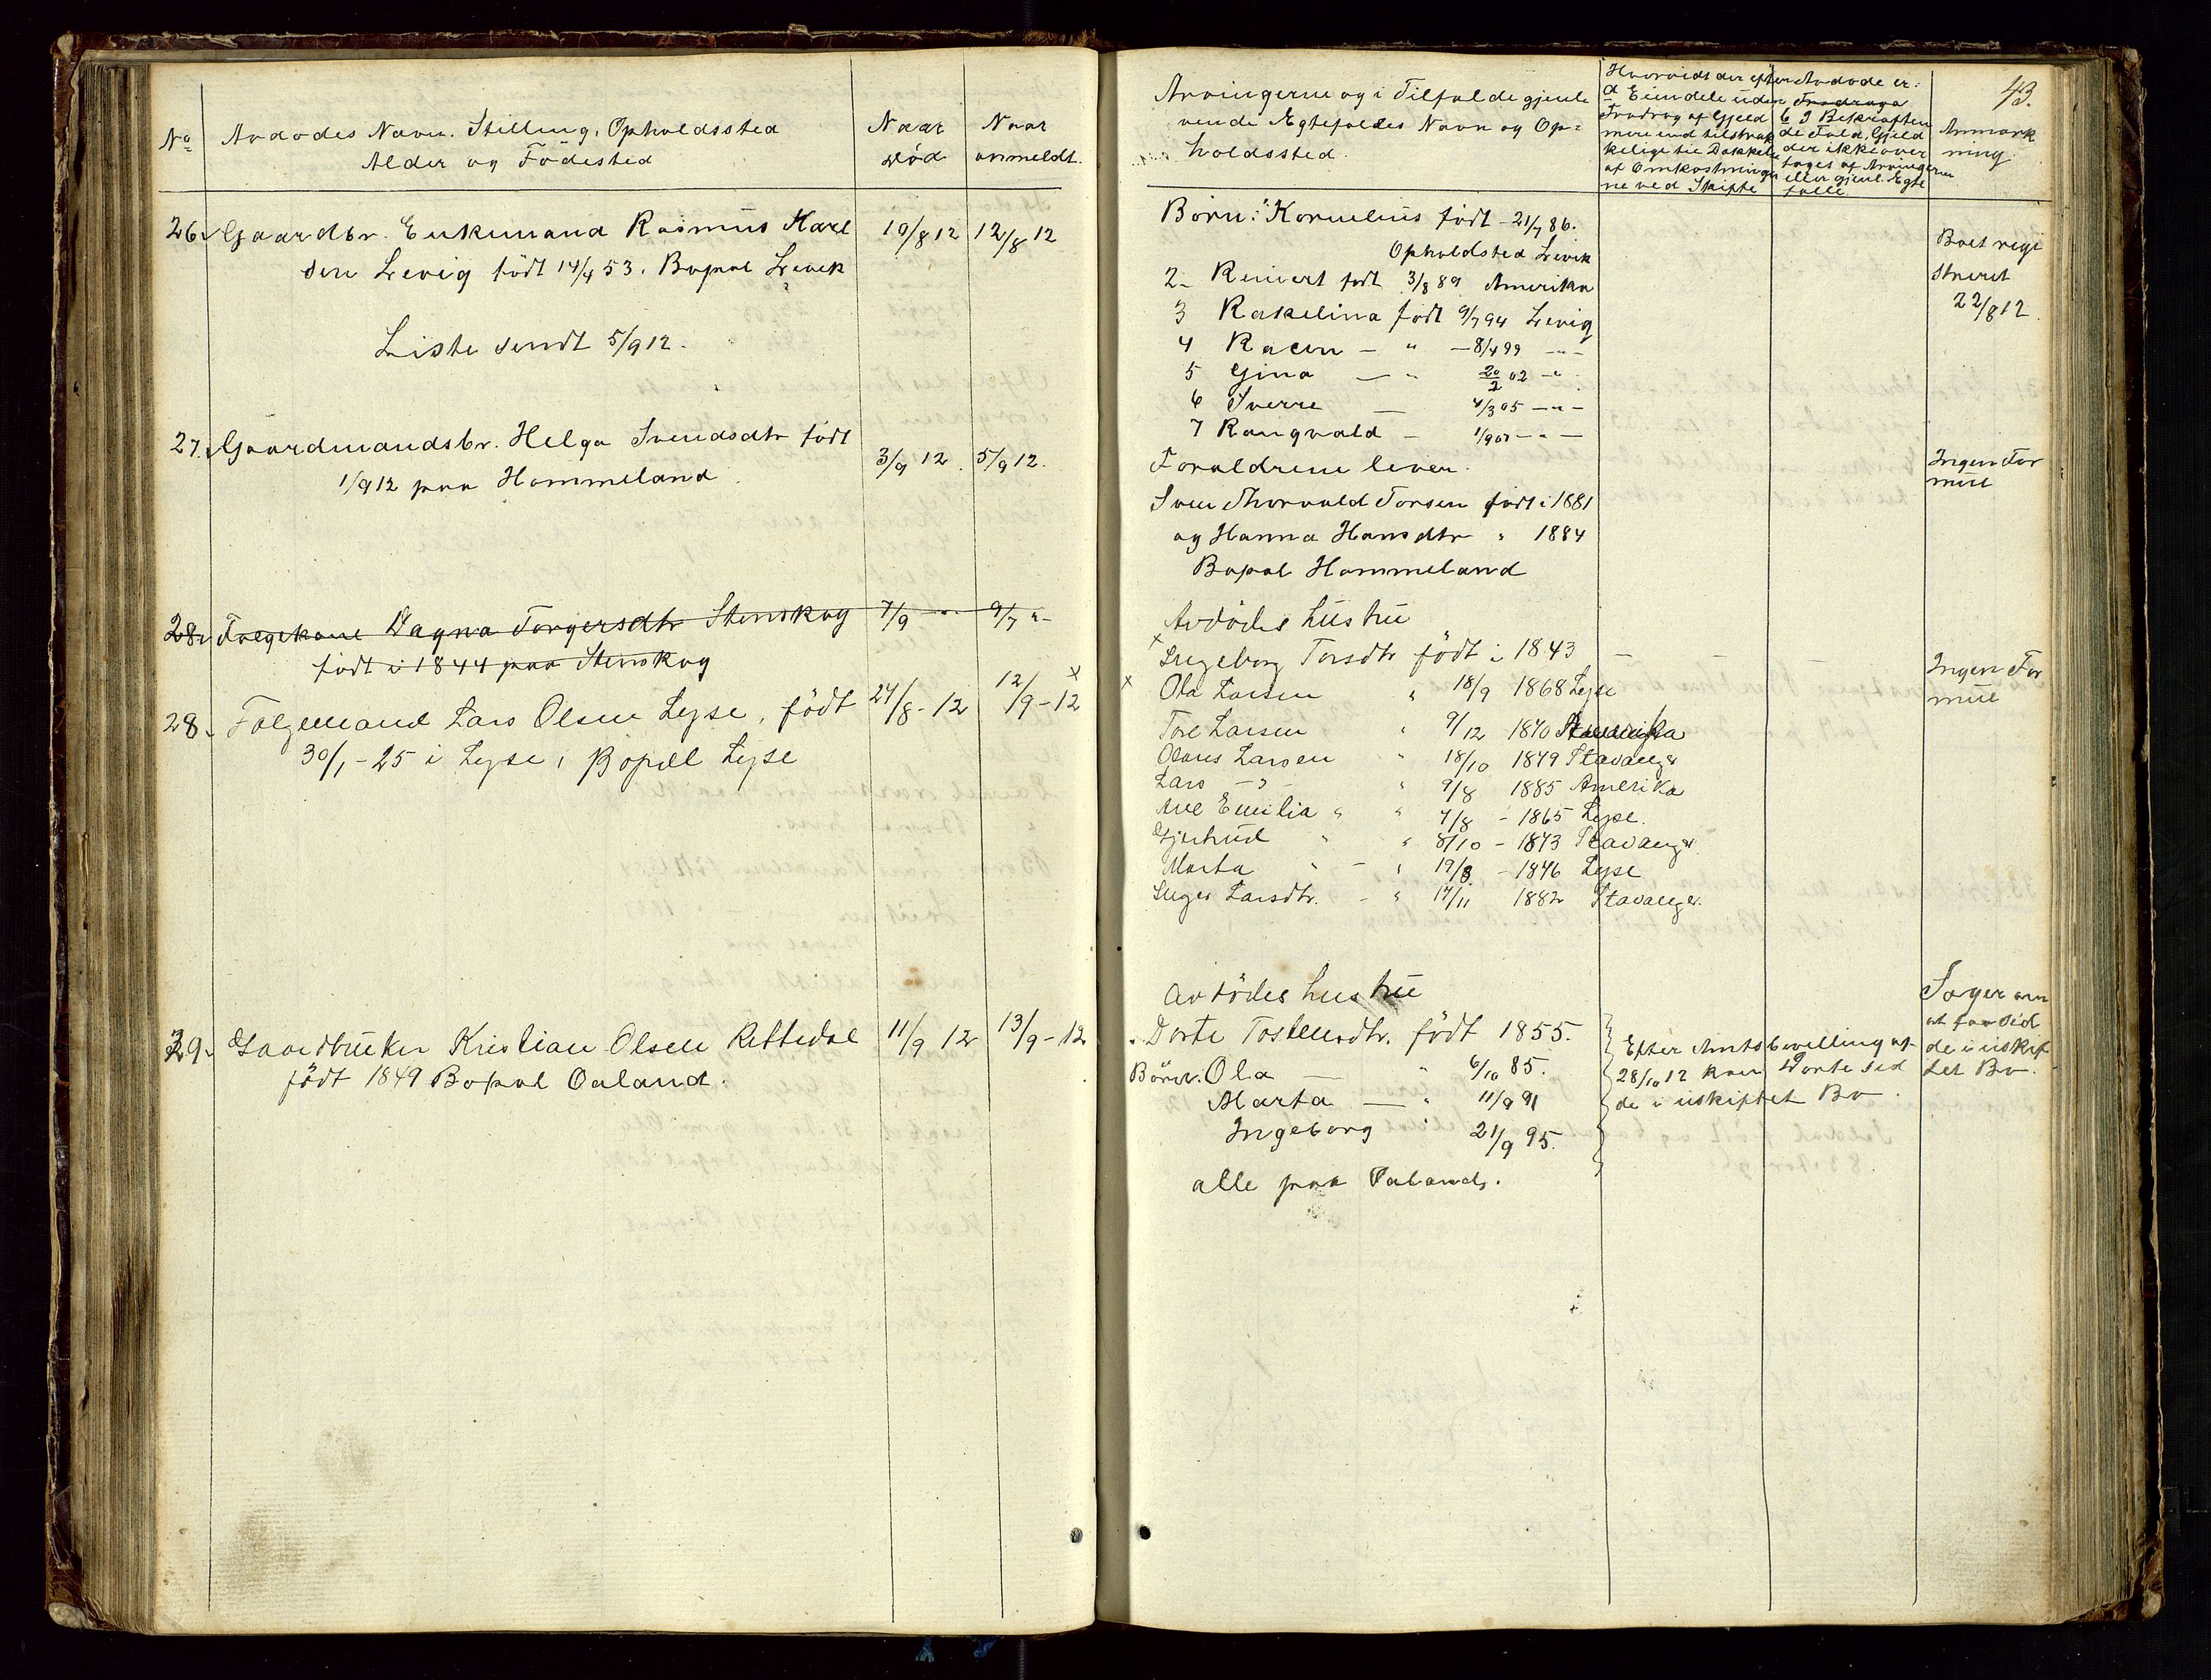 No
Avdødes Navn. Stilling, Opholdssted
Alder og Födested
Naar
død
Naar
anmeldt.
26. Gaardbr. Enkemand Rasmus Karl
sen Levig født 14/4 53. Bopæl Levik
10/8 12
12/8 12
Liste sendt 5/9 12.
27. Gaardmandsbr. Helga Svendsdtr født
1/9 12 paa Hommeland
3/9 12.
5/9 12.
28. Følgekone Dagna Torgersdtr Stenskog
født i 1844 paa Stenskog
7/9 -"-
9/7 "-
28. Følgemand Lars Olsen Lyse, født
30/1 - 25 i Lyse, Bopæl Lyse
27/8 - 12
12/9 - 12
29. Gaardbruker Kristian Olsen Rettedal
født 1849 Bopæl Oaland.
11/9 12
13/9 - 12
43.
Arvingerne og i Tilfælde gjenle
vende Egtefælles Navn og Op=
holdssted.
Hvorvidt der efter Avdøde er:
a Eiendele uden
Fradrag af Gjeld
mere end tilstræk
kelige til Dækkelse
af Omkostninger
ne ved Skifte
b I Bekræften
de Fald, Gjeld
der ikke over
tages af Arvingerne
eller gjenl. Egte
fælle.
Anmærk
ning
Børn: Kornelius født - 21/7 86.
Opholdsted Levik
2- Reinert født 3/8 89 Amerika
3 Rakelina født 9/7 94 Levig
4 Racin — " — 8/4 99 -"-
5 Gina — " 20/2 02 -"
6 Sverre — 4/3 05 -"-
7 Rangvald - 1/9 07 -"-
Boet regi
streret
22/8 12
Forældrene lever.
Sven Thorvald Torsen født i 1881
og Hanna Hansdtr " 1884
Bopæl Hommeland
Ingen For
mue
Avdødes hustru
Ingeborg Torsdtr født i 1843
Ola Larsen " 18/9 1868 Lyse
Tore Larsen " 9/12 1870 Amerika
Olaus Larsen " 18/10 1879 Stavanger
Lars -"- " 9/8 1885 Amerika
Ane Emilia " " 7/8 - 1865 Lyse.
Gjertrud " " 8/10 - 1873 Stavanger
Marta " - " 19/8 - 1876 Lyse
Inger Larsdtr. - " 17/11 1882 Stavanger.
Ingen For
mue
Avdödes hustru
Dorte Tostensdtr. födt 1855.
Börn: Ola — " 6/10 85.
Marta — " 11/9 91
Ingeborg " 21/9 95.
alle paa Oaland.
Efter Amtsbevilling af
28/10 12 kan Dorte sid
de i uskiftet Bo.
Søger om
at faa sid
de i uskif
tet Bo.